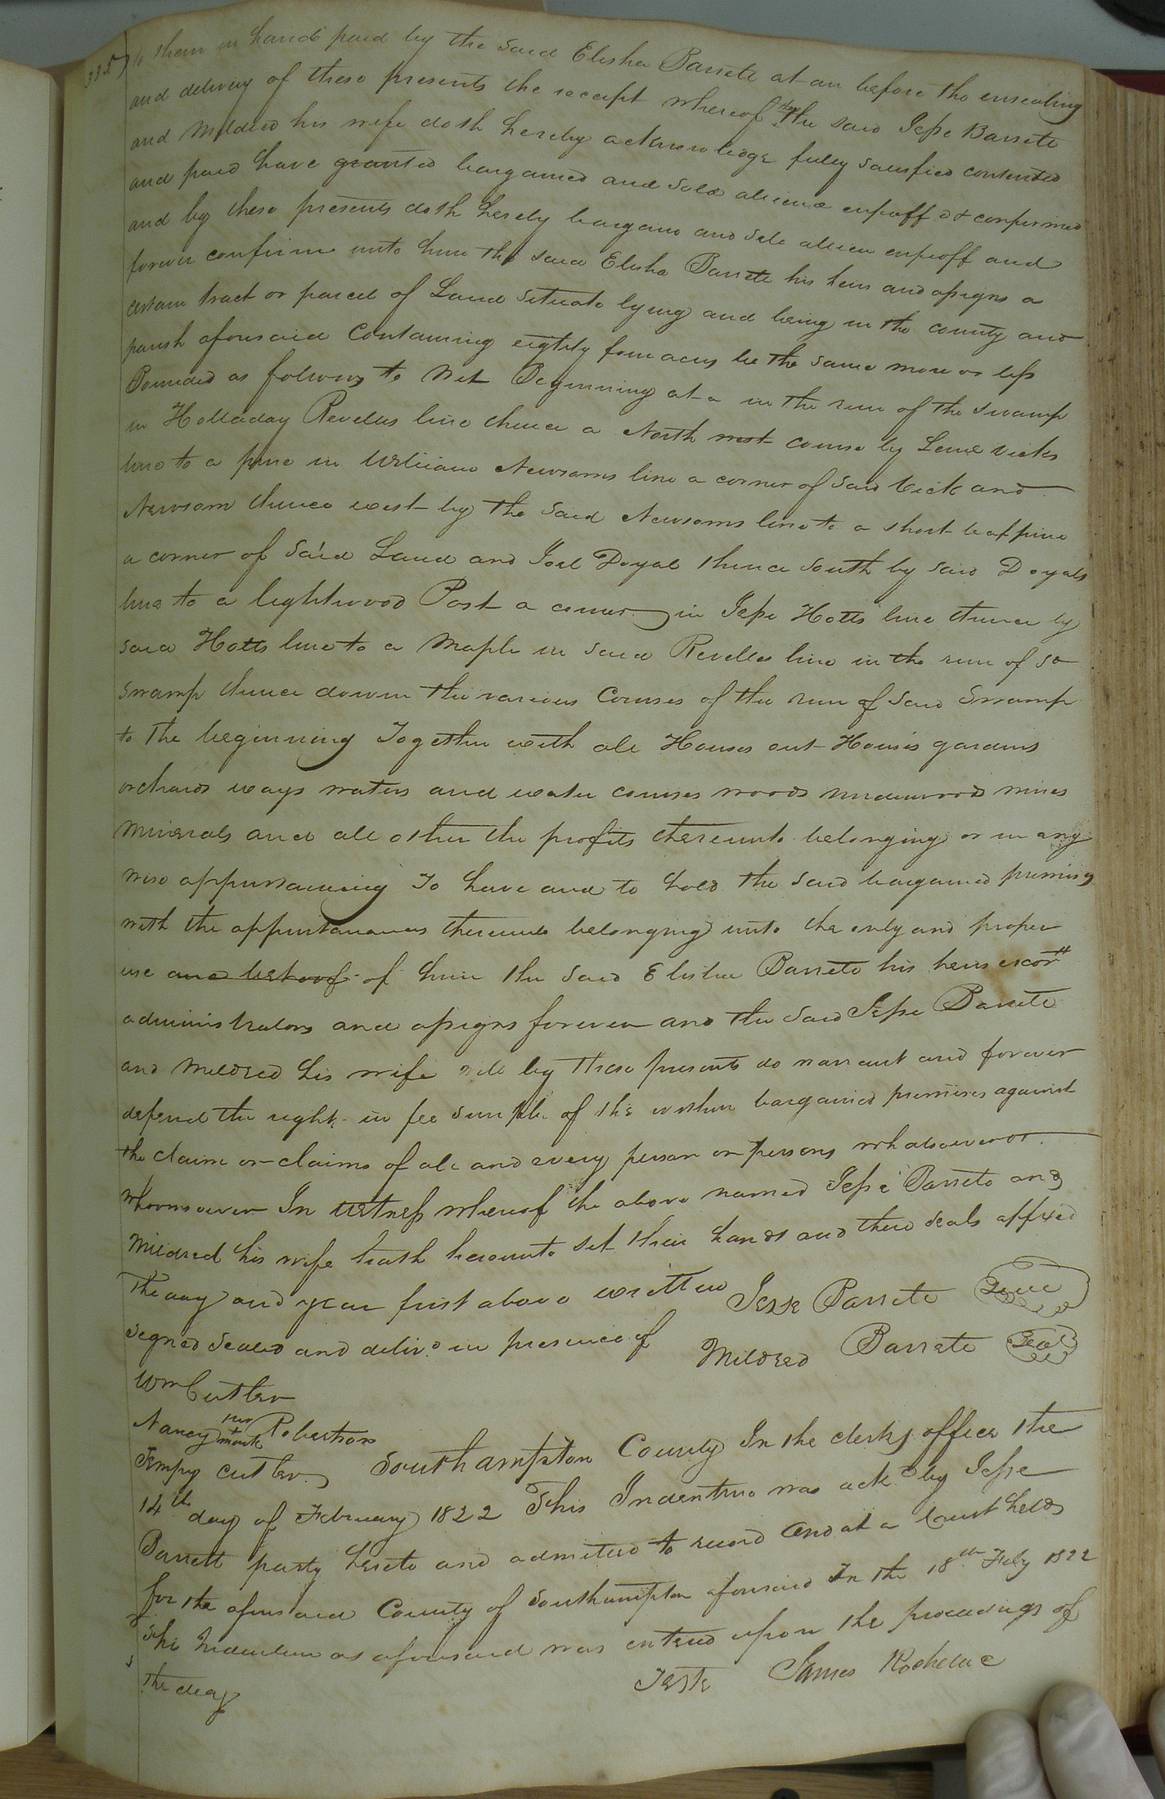 335) to them in hand paid by the said Elisha Barrett at an before the ensealing
and delivery of these presents the receipt whereof they the said Jesse Barrett
and Mildred his wife doth hereby acknowledge fully satisfied contented
and paid have granted bargained and sold aliend enfeoff d & confirmed
and by these presents doth hereby bargane and sele alien enfeoff and
forever confirm unto him the said Elisha Barrett his heirs and assigns a
certain tract or parcel of Land situate lying and being in the county and
parish aforesaid Containing eightly four acres be the same more or less
Bounded as follows to Wit Beginning at a in the run of the swamp
in Holladay Revells line thence a North west course by Vicks
line to a pine in William Newsoms line a corner of said Vick and
Newsom thence west by the said Newsoms line to a short leaf pine
a corner of said Land and Joel Doyal thence South by said Doyals
line to a lightwood Post a corner in Jesse Hotts line thence by
said Hotts line to a Maple in said Revells line in the run of sd
Swamp thence down the various Courses of the run of said Swamp
to the beginning Together with all Houses out Houses gardens
orchards ways waters and water courses woods underwoods mines
Minerals and all other the profits thereunto belonging or in any
wise appurtaining To have and to hold the said bargained premises
with the appurtanances thereunto belonging unto the only and proper
use and behoof of him the said Elisha Barrett his heirs excors
administrators and assigns forever and the said Jesse Barrett
and Mildred his wife will by these presents do warrant and forever
defend the right in fee simple of the within bargained premises against
the claim or claims of all and every person or persons whatsoever or
whomsoever In witness whereof the above named Jesse Barrett and
Mildred his wife hath hereunto set their hands and thire seals affixed
The day and year first above written Jesse Barrett Seal
signed sealed and delivd in presence of Mildred Barrett Seal
Wm Cutler
Nancy her + mark Robertson
Tempy cutler Southampton County In the clerks office the
14th day of February 1822 This Indenture was ackd by Jesse
Barrett party hereto and admitted to record And at a Court held
for the aforesaid County of Southampton aforesaid In the 18th Feby 1822
this Indenture as aforesaid was entered upon the proceedings of
the day Teste James Rochelle C